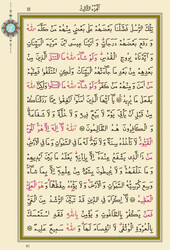 تِلْكَ الرُّسُلُ فَضَّلْنَا بَعْضَهُمْ عَلَىٰ بَعْضٍ مِنْهُمْ مَنْ كَلَّمَ اللَّهُ
وَرَفَعَ بَعْضَهُمْ دَرَجَاتٍ وَآتَيْنَا عِيسَى ابْنَ مَرْيَمَ الْبَيِّنَاتِ
وَأَيَّدْنَاهُ بِرُوحِ الْقُدُسِ وَلَوْ شَاءَ اللَّهُ مَا اقْتَتَلَ الَّذِينَ
مِنْ بَعْدِهِمْ مِنْ بَعْدِ مَا جَاءَتْهُمُ الْبَيِّنَاتُ وَلَٰكِنِ اخْتَلَفُوا فَمِنْهُمْ
مَنْ آمَنَ وَمِنْهُمْ مَنْ كَفَرَ وَلَوْ شَاءَ اللَّهُ مَا اقْتَتَلُوا وَلَٰكِنَّ اللَّهَ
يَفْعَلُ مَا يُرِيدُ يَا أَيُّهَا الَّذِينَ آمَنُوا أَنْفِقُوا مِمَّا رَزَقْنَاكُمْ
مِنْ قَبْلِ أَنْ يَأْتِيَ يَوْمٌ لَا بَيْعٌ فِيهِ وَلَا خُلَّةٌ وَلَا شَفَاعَةٌ
وَالْكَافِرُونَ هُمُ الظَّالِمُونَ اللَّهُ لَا إِلَٰهَ إِلَّا هُوَ الْحَيُّ
الْقَيُّومُ لَا تَأْخُذُهُ سِنَةٌ وَلَا نَوْمٌ لَهُ مَا فِي السَّمَاوَاتِ وَمَا فِي
الْأَرْضِ مَنْ ذَا الَّذِي يَشْفَعُ عِنْدَهُ إِلَّا بِإِذْنِهِ يَعْلَمُ مَا بَيْنَ
أَيْدِيهِمْ وَمَا خَلْفَهُمْ وَلَا يُحِيطُونَ بِشَيْءٍ مِنْ عِلْمِهِ إِلَّا بِمَا شَاءَ
وَسِعَ كُرْسِيُّهُ السَّمَاوَاتِ وَالْأَرْضَ وَلَا يَئُودُهُ حِفْظُهُمَا وَهُوَ الْعَلِيُّ
الْعَظِيمُ لَا إِكْرَاهَ فِي الدِّينِ قَدْ تَبَيَّنَ الرُّشْدُ مِنَ الْغَيِّ
فَمَنْ يَكْفُرْ بِالطَّاغُوتِ وَيُؤْمِنْ بِاللَّهِ فَقَدِ اسْتَمْسَكَ
بِالْعُرْوَةِ الْوُثْقَىٰ لَا انْفِصَامَ لَهَا وَاللَّهُ سَمِيعٌ عَلِيمٌ